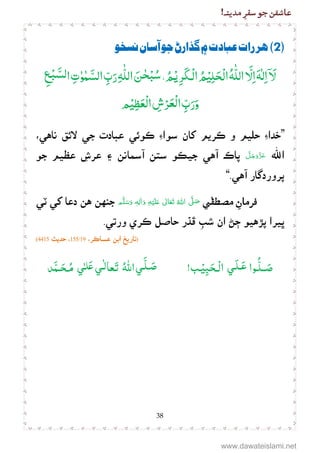 عاشقن جو سفرِ مدينہ!
(2) هر رات عبادت ۾ گذارڻ جو آسان نسخو
لَآ اِلٰهَ اِلَّا اللهُ الْحَلِيْمُ الْكَرِيْمُ، سُبْحٰنَ اللهِ رَبِّ السَّمٰوٰتِ السَّبْعِ
وَرَبِّ الْعَرْشِ الْعَظِيْمِ
”خداءِ حليم و ڪريم کان سواءِ ڪوئي عبادت جي لائق ناهي،
الله عَزَّوَجَلَّ پاڪ آهي جيڪو ستن آسمانن ۽ عرشِ عظيم جو
پروردگار آهي.“
فرمانِ مصطفٰي صَلَّى اللهُ تَعَالٰى عَلَيْهِ وَاٰلِهٖ وَسَلَّم جنهن هن دعا کي ٽي
ڀيرا پڙهيو ڄڻ ان شبِ قدْر حاصل ڪري ورتي.
(تاريخ ابن عساکر، 155/19، حديث 4415)
صَلُّوا عَلَى الْحَبِيْب! صَلَّى اللهُ تَعَالٰى عَلٰى مُحَمَّد
38
www.dawateislami.net